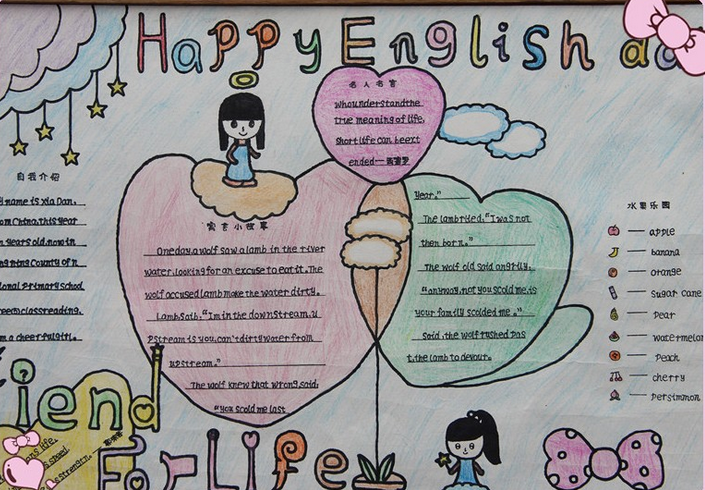 Happy English
自我介绍
name is Xia Dan.
China, this year
years old, now in
County of n
primary school
reading,
m a cheerful girl.
名人名言
who understand the
true meaning of life,
short life can be ext
ended—
寓言小故事
One day, a wolf saw a lamb in the river
water, looking for an excuse to eat it. The
wolf accused lamb make the water dirty.
Lamb saib: "I'm in the down stream, u
pstream is you, can't dirty water from
upstream."
The wolf knew that wrong, said:
"you scold me last
year."
The lamb ried, "I was not
then born."
The wolf old said angrily,
"anyway, not you scold me, is
your family scolded me."
Said, the wolf rushed pas
t, the lamb to devour.
水果乐园
apple
banana
orange
sugar cane
pear
watermelon
peach
cherry
persimmon
iend
For Life
life,
strength.